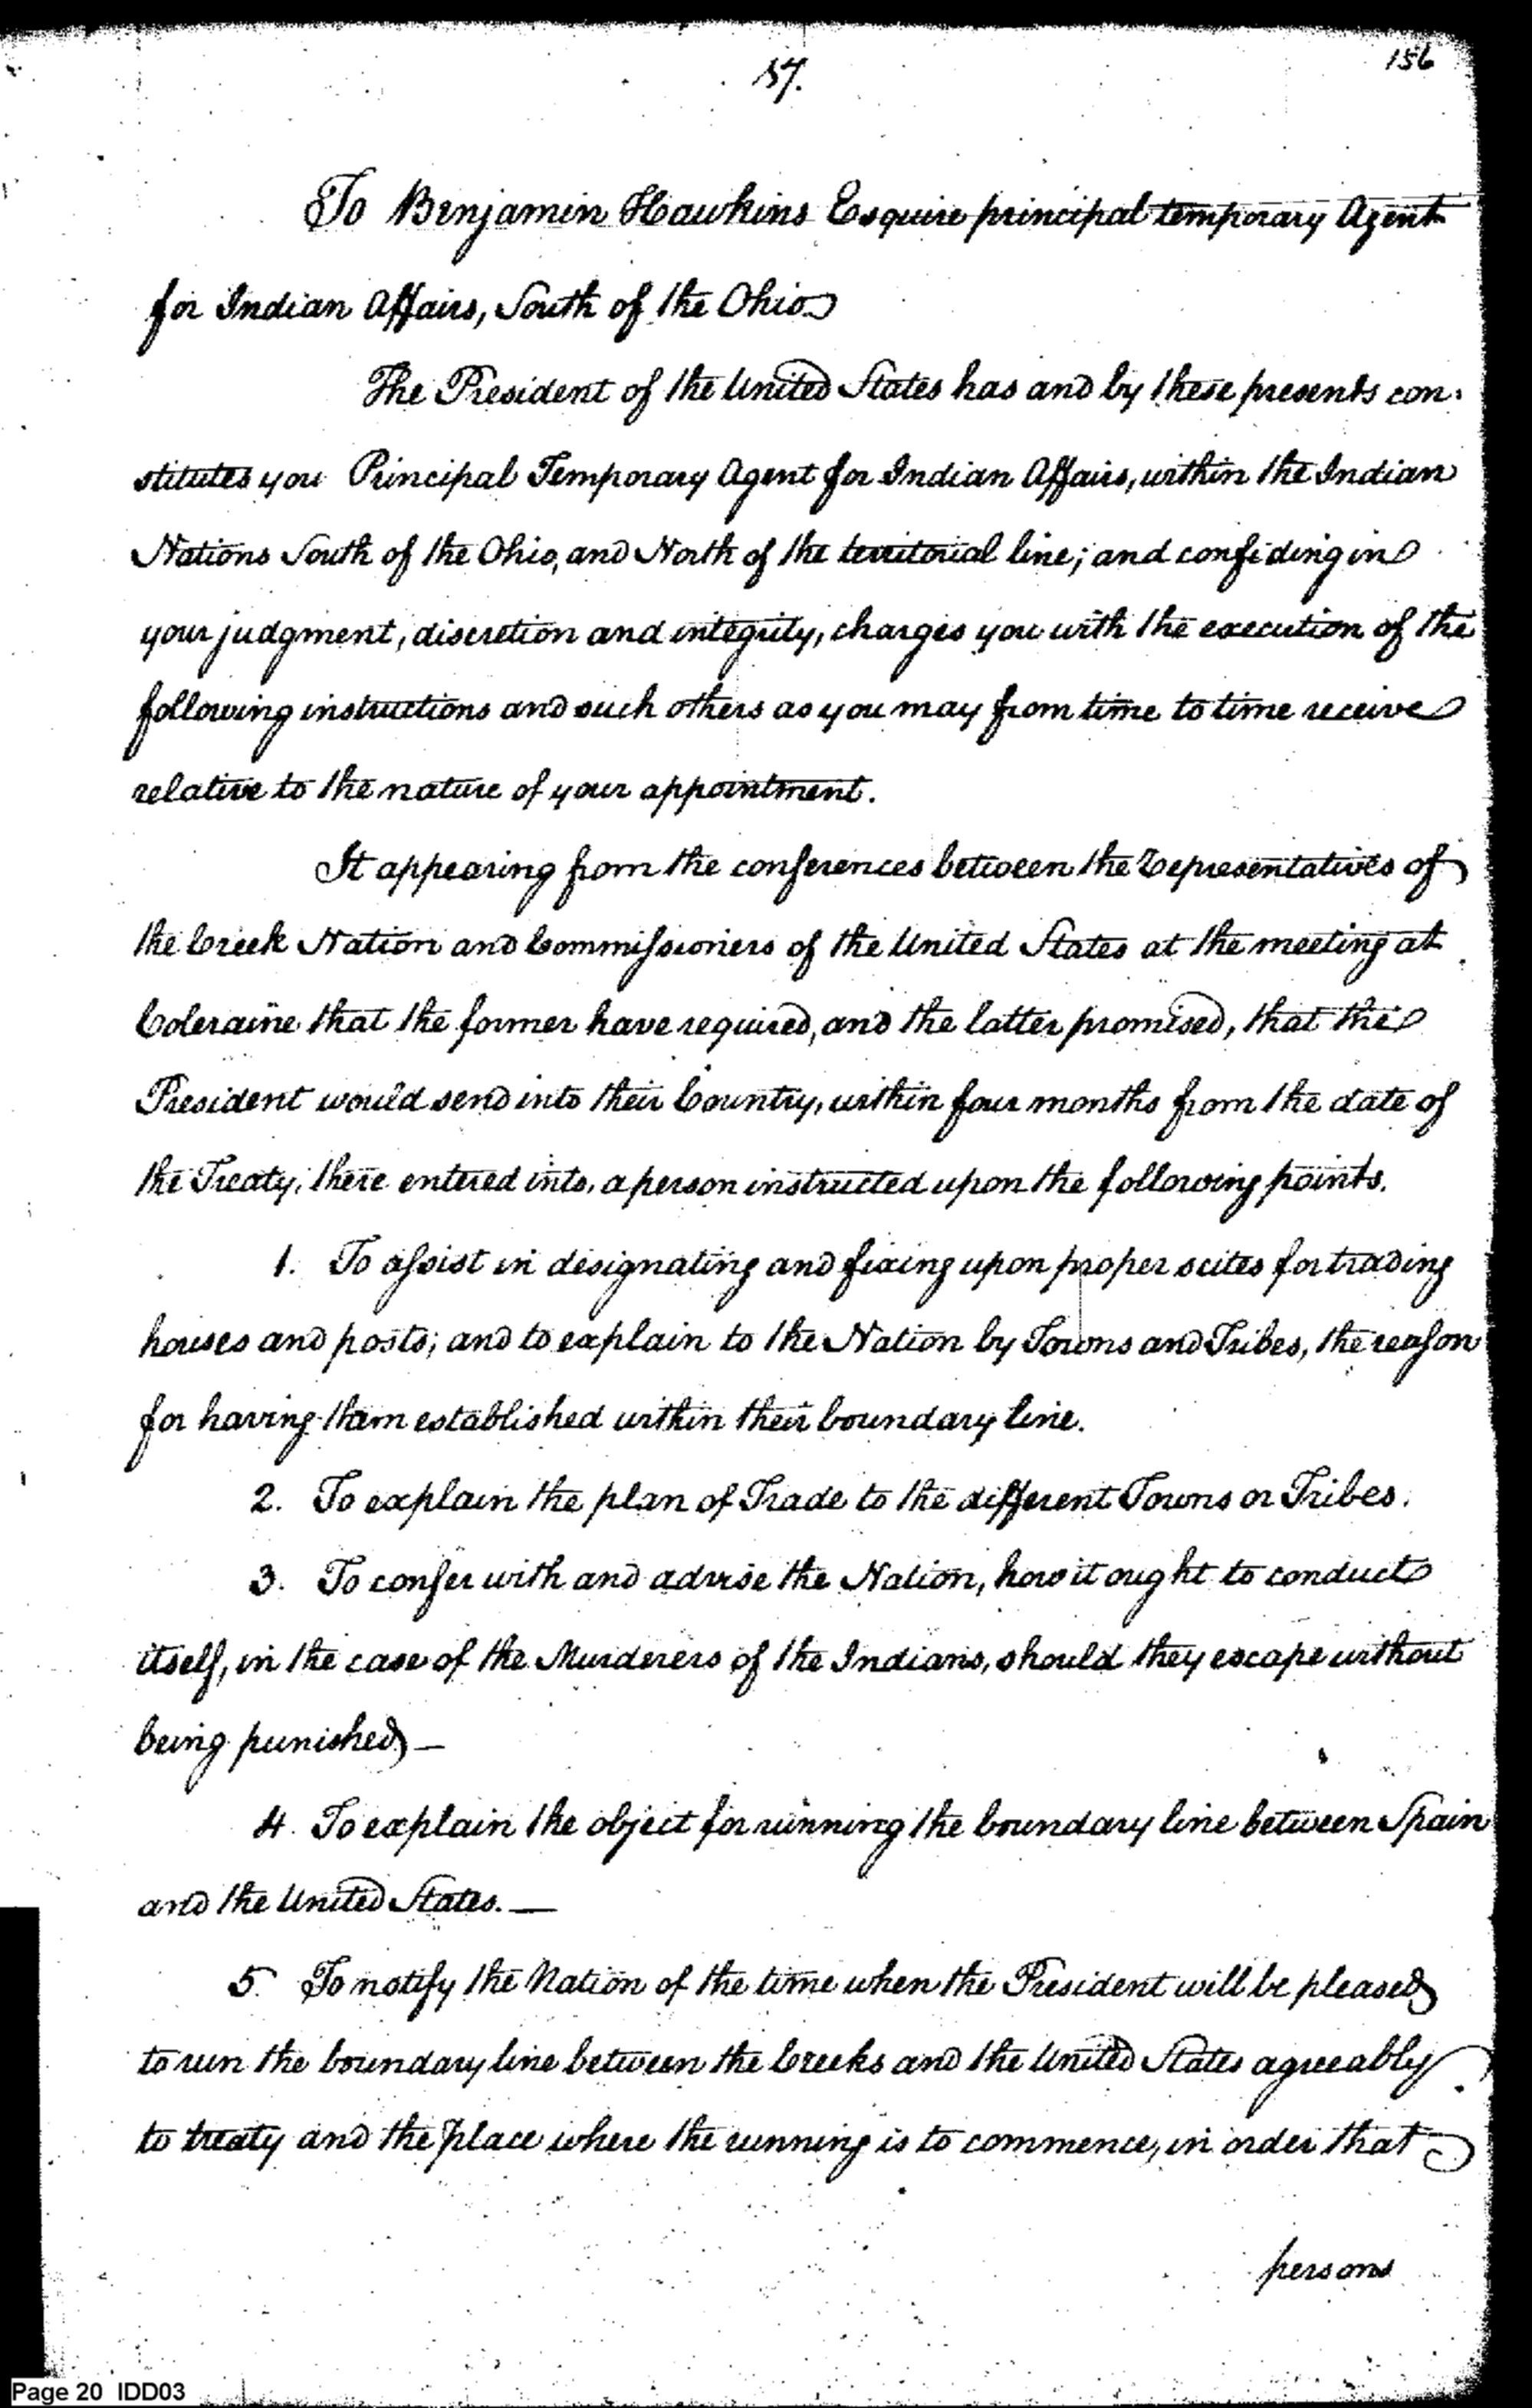 156
57.
To Benjamin Hawkins Esquire principal temporary Agent
for Indian Affairs, South of the Ohio
The President of the United States has and by these presents con-
stitutes you Principal Temporary Agent for Indian Affairs, within the Indian
Nations South of the Ohio, and North of the territorial line; and confiding in
your judgment, discretion and integrity, charges you with the execution of the
following instructions and such others as you may from time to time receive
relative to the nature of your appointment.
It appearing from the conferences between the Representatives of
the Creek Nation and Commissioners of the United States at the meeting at
Coleraine that the former have required, and the latter promised, that the
President would send into their Country, within four months from the date of
the Treaty, there entered into, a person instructed upon the following points.
1. To assist in designating and fixing upon proper scites for trading
houses and posts; and to explain to the Nation by Towns and Tribes, the reason
for having them established within their boundary line.
2. To explain the plan of Trade to the different Towns or Tribes.
3. To confer with and advise the Nation, how it ought to conduct
itself, in the case of the Murderers of the Indians, should they escape without
being punished —
4. To explain the object for running the boundary line between Spain
and the United States. —
5. To notify the Nation of the time when the President will be pleased
to run the boundary line between the Creeks and the United States agreeably
to treaty and the place where the running is to commence, in order that
persons
Page 20 IDD03